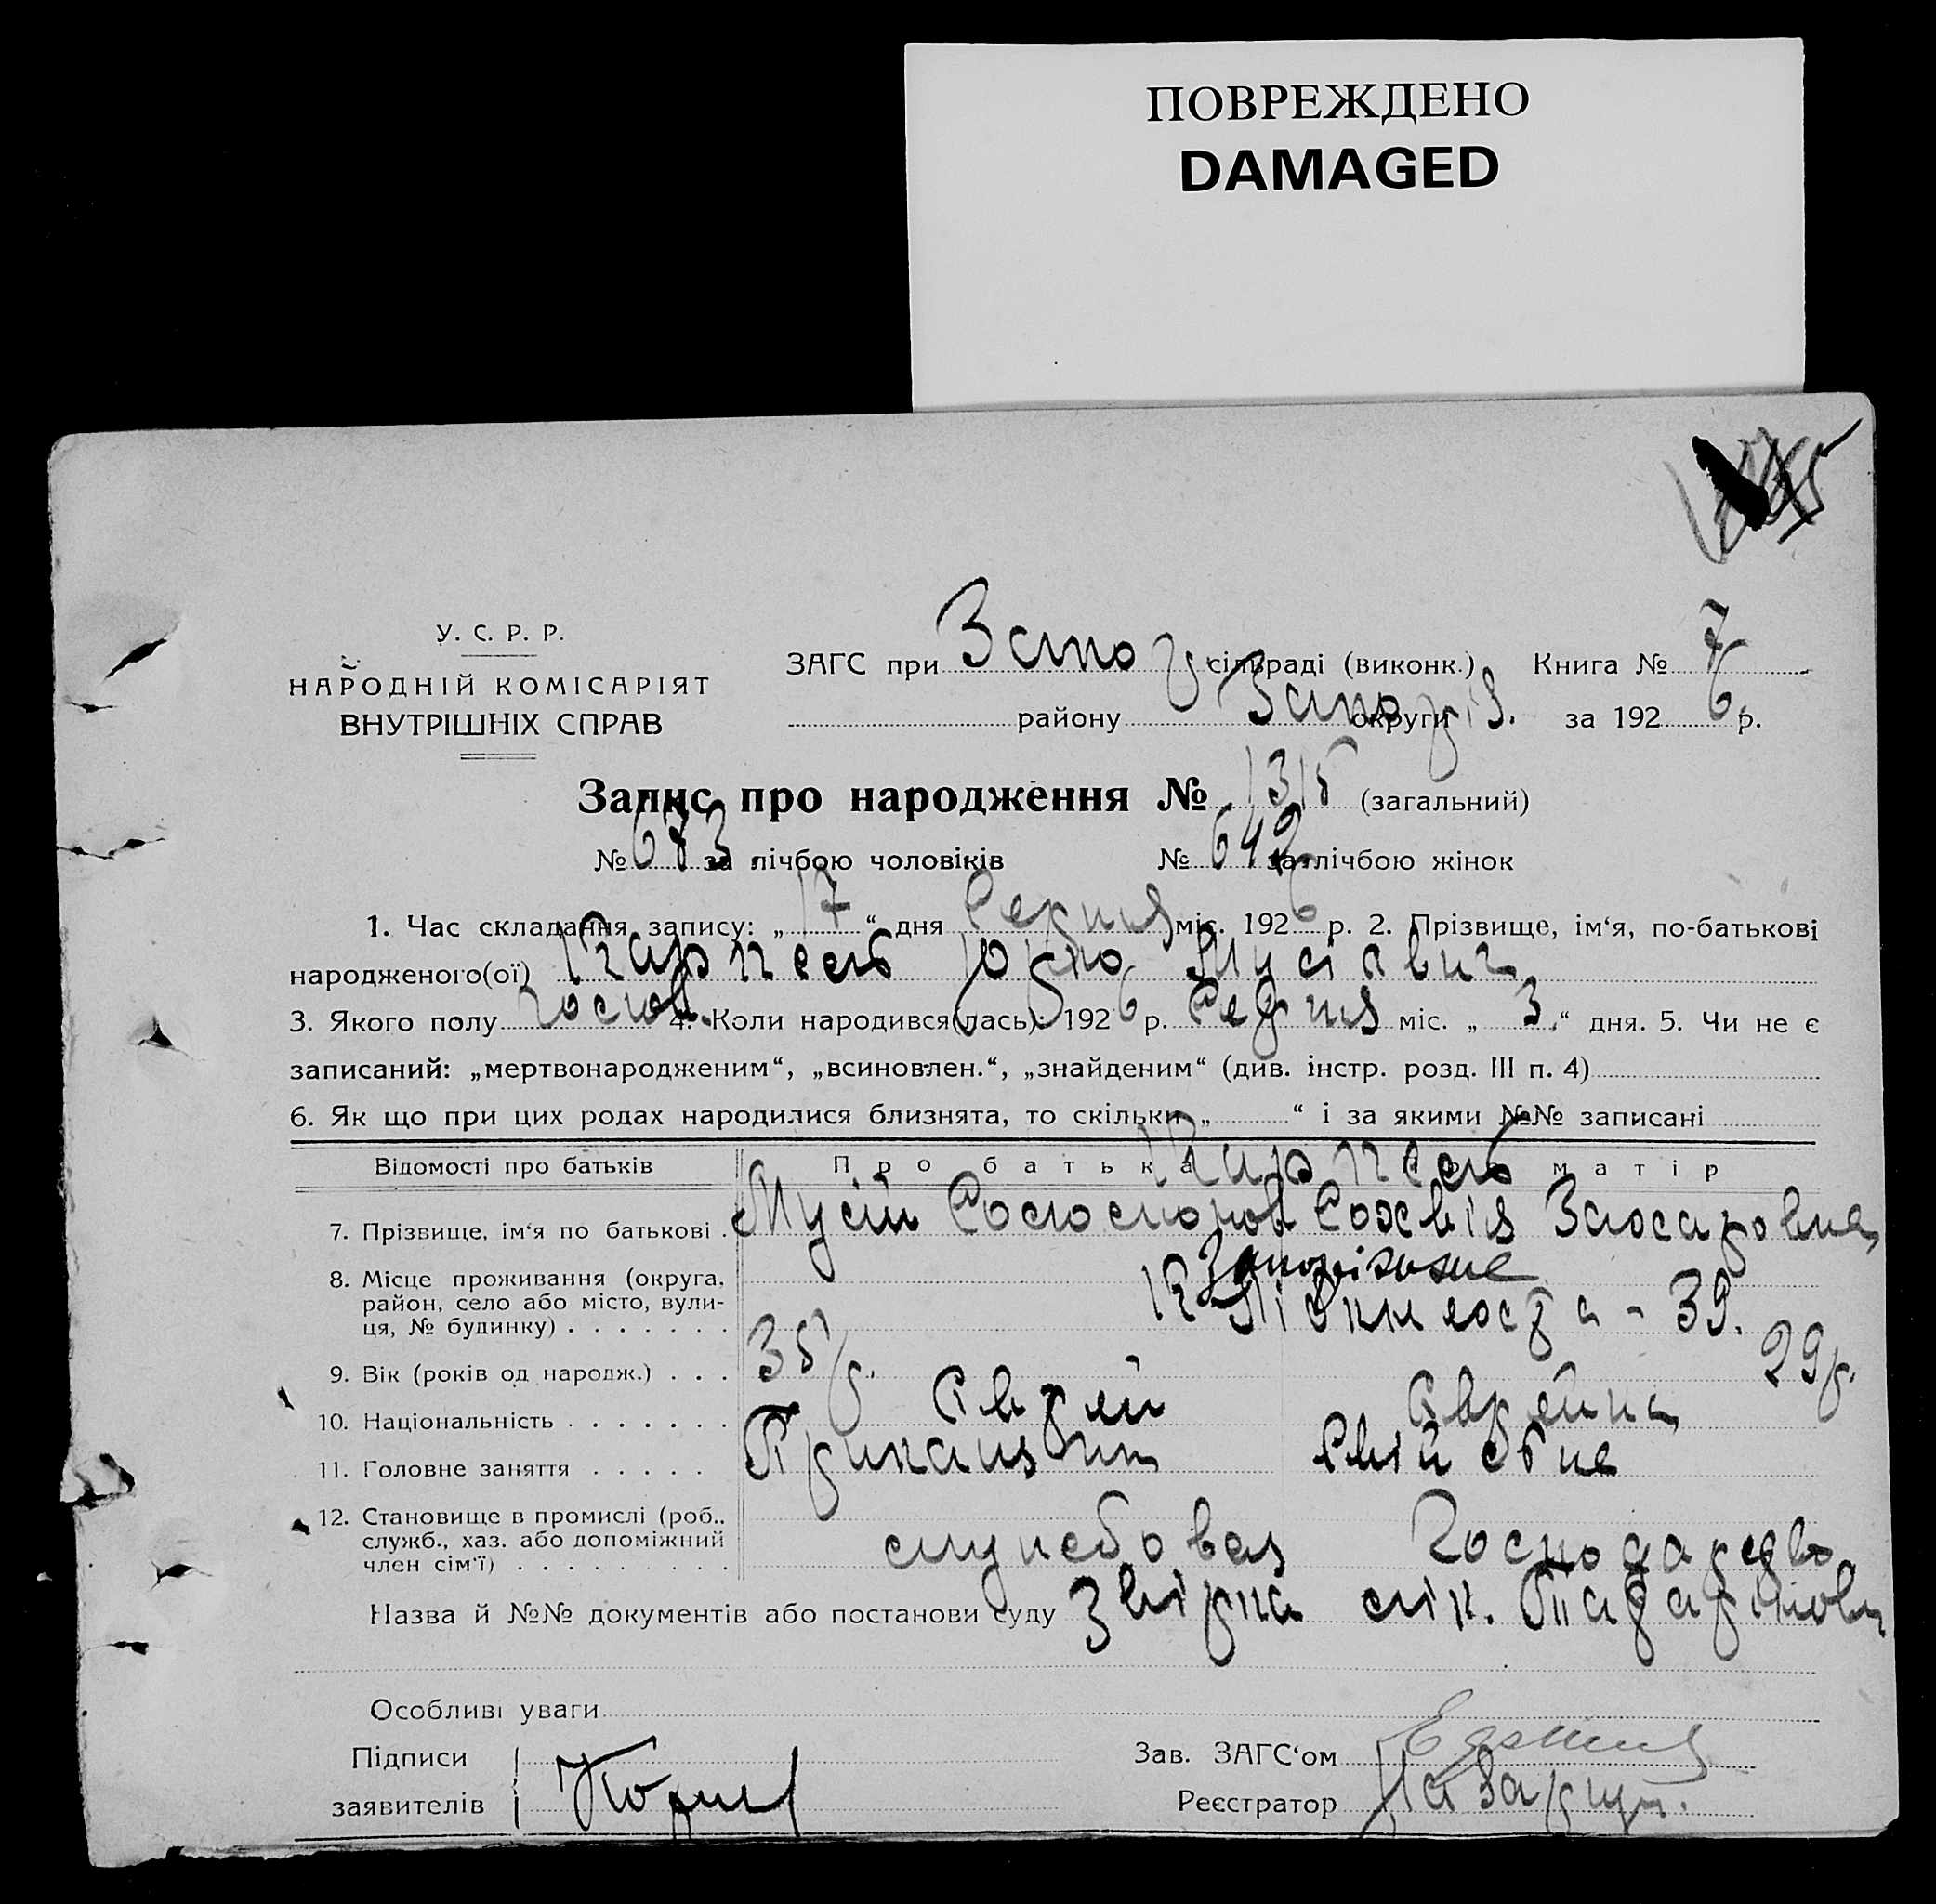 ПОВРЕЖДЕНО
DAMAGED
У. С. Р. Р.
НАРОДНІЙ КОМІСАРІЯТ
ВНУТРІШНІХ СПРАВ
ЗАГС при Запор сільраді (виконк.) Книга № 7
району Запоріз. округи за 1926 р.
Запис про народження № 1315 (загальний)
№ 673 за лічбою чоловіків № 642 за лічбою жінок
1. Час складання запису: „17“ дня Серпня міс. 1926 р. 2. Прізвище, ім‘я, по-батькові
народженого(ої) Мусієвич
3. Якого полу чолов. 4. Коли народився(лась) 1926 р. Серпня міс. „3“ дня. 5. Чи не є
записаний: „мертвонародженим“, „всиновлен.“, „знайденим“ (див. інстр. розд. III п. 4)
6. Як що при цих родах народилися близнята, то скільки „ “ і за якими №№ записані
Відомості про батьків Про батька матір
7. Прізвище, ім‘я по батькові Мусій Соломонов Захаровна
8. Місце проживання (округа, район, село або місто, вулиця, № будинку) Запоріжжя 39.
9. Вік (років од народж.) 35 р. 29 р.
10. Національність Єврей Єврейка
11. Головне заняття Приказчик Хатнє
12. Становище в промислі (роб., служб., хаз. або допоміжний член сім‘ї) службовец Господарство
Назва й №№ документів або постанови суду
Особливі уваги
Підписи
заявителів
Зав. ЗАГС‘ом
Реєстратор